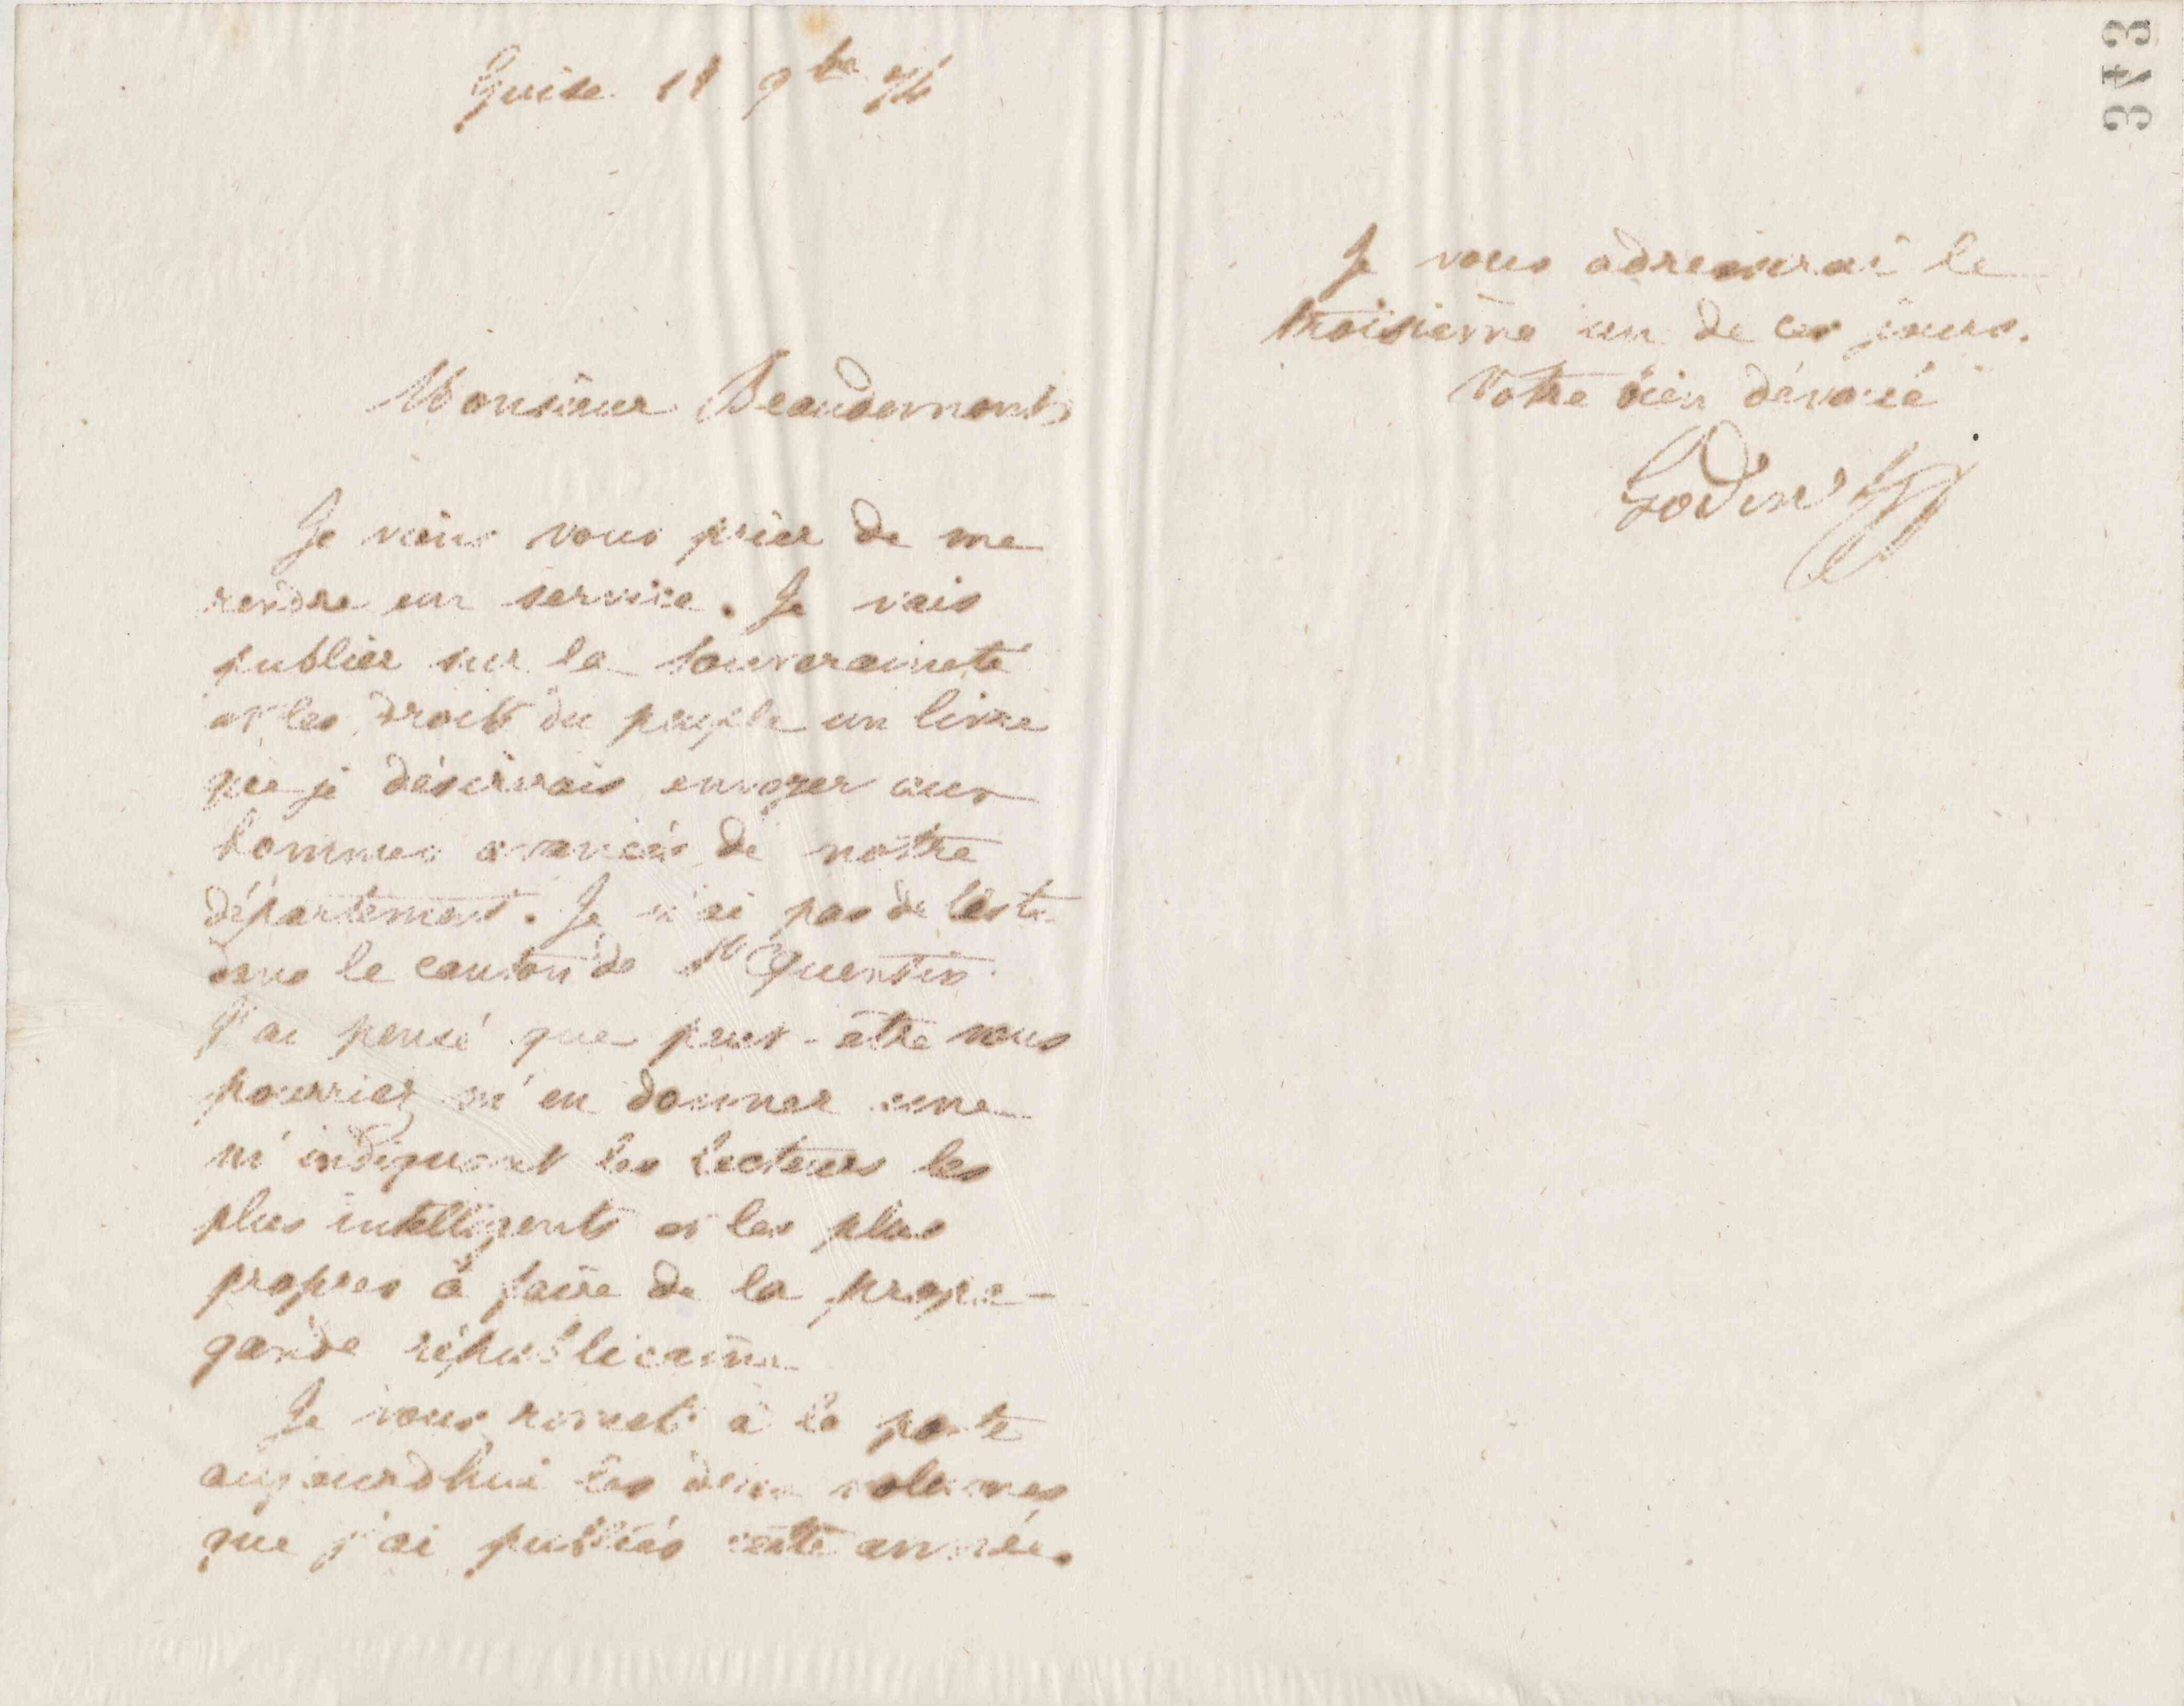 343
Guise 9bre 74
Monsieur Beaudemont
Je viens vous prier de me
rendre un service. Je vais
publier sur la souveraineté
et les droits du peuple un livre
que je désirerais envoyer aux
hommes avancés de notre
département. Je n'ai pas de liste
dans le canton de St Quentin.
J'ai pensé que peut-être vous
pourriez m'en donner une
m'indiquant les lecteurs les
plus intelligents et les plus
propres à faire de la propa-
gande républicaine
Je vous remets à la poste
aujourd'hui les deux volumes
que j'ai publiés cette année.
Je vous adresserai le
troisième un de ces jours.
Votre bien dévoué
Godin